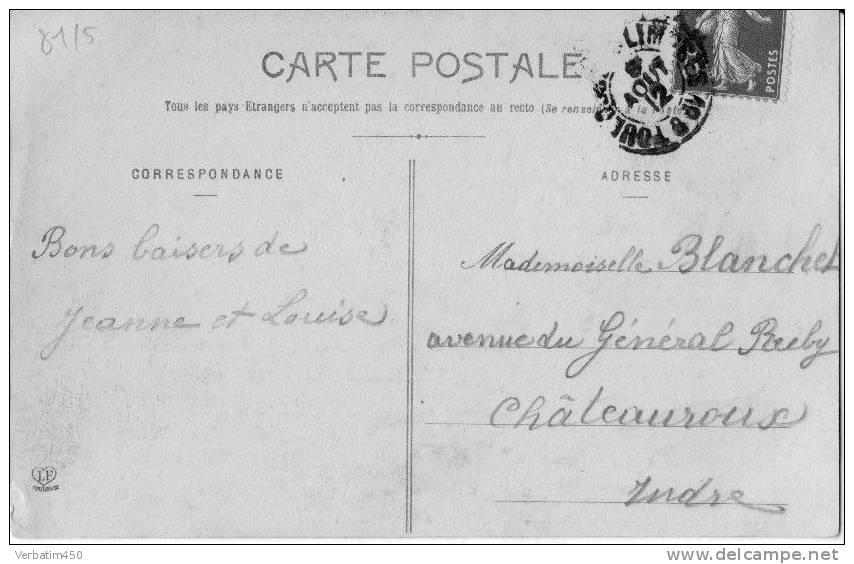 81/5
CARTE POSTALE
Tous les pays Etrangers n'acceptent pas la correspondance au recto (Se renseigner à la Poste)
LIMOGES
AOUT
12
POSTES
CORRESPONDANCE
ADRESSE
Bons baisers de
Jeanne et Louise
Mademoiselle Blanchet
avenue du Général Ruby
Châteauroux
Indre
LF
TOULOUSE
Verbatim450
delcampe.net